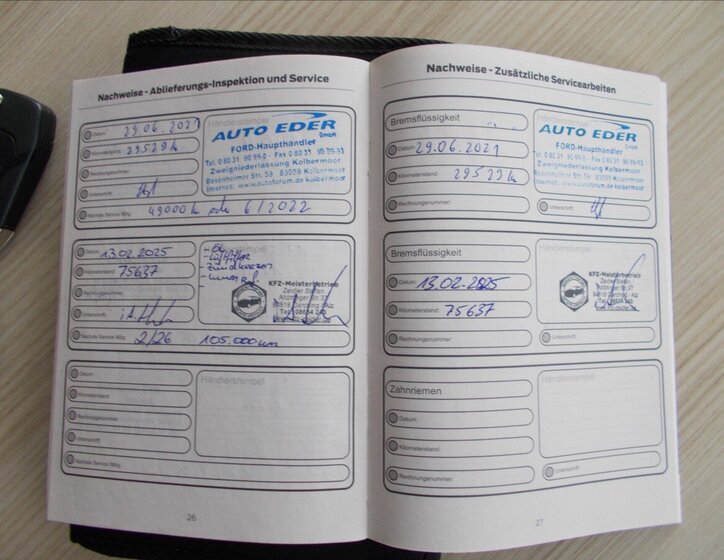 Nachweise - Ablieferungs-Inspektion und Service
Datum 29.06.2021
Kilometerstand 29529 km
Rechnungsnummer
Unterschrift
Nächste Service fällig 49000 km oder 6/2022
Händlerstempel
AUTO EDER GmbH
FORD-Haupthändler
Tel. 0 80 31 90 99-0 · Fax 0 80 31 90 99-93
Zweigniederlassung Kolbermoor
Rosenheimer Str. 59 · 83059 Kolbermoor
Internet: www.autoforum.de kolbermoor
Datum 13.02.2025
Kilometerstand 75637
Rechnungsnummer
Unterschrift
Nächste Service fällig 2/26 105.000 km
Händlerstempel
- Öl
- Luftfilter
- Zündkerzen
KFZ-Meisterbetrieb
Zeidler Stefan
Datum
Kilometerstand
Rechnungsnummer
Unterschrift
Nächste Service fällig
Händlerstempel
26
Nachweise - Zusätzliche Servicearbeiten
Bremsflüssigkeit
Datum: 29.06.2021
Kilometerstand: 29529 km
Rechnungsnummer:
Unterschrift
AUTO EDER GmbH
FORD-Haupthändler
Tel. 0 80 31 90 99-0 · Fax 0 80 31 90 99-93
Zweigniederlassung Kolbermoor
Rosenheimer Str. 59 · 83059 Kolbermoor
Internet: www.autoforum.de kolbermoor
Bremsflüssigkeit
Datum: 13.02.2025
Kilometerstand: 75637
Rechnungsnummer:
Unterschrift
KFZ-Meisterbetrieb
Zeidler Stefan
Zahnriemen
Datum:
Kilometerstand:
Rechnungsnummer:
Unterschrift
Händlerstempel
27